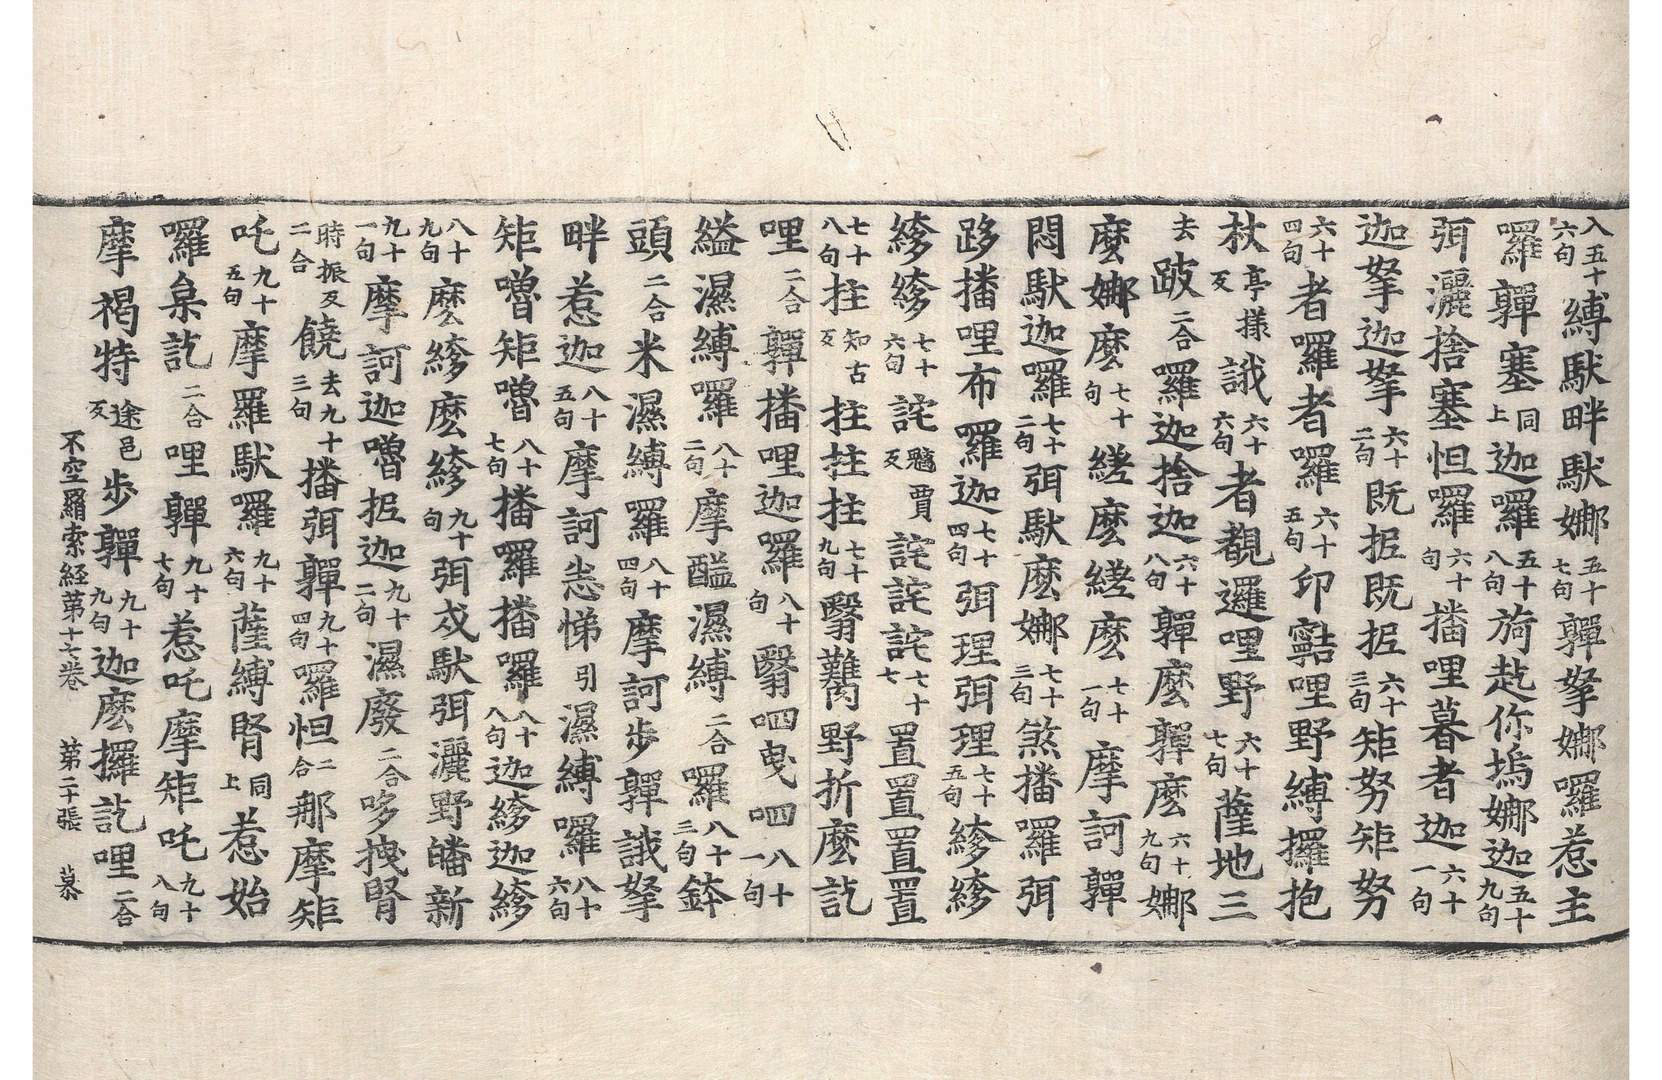 入五十六句縛馱畔馱娜五十七句嚲拏娜囉惹主
囉嚲塞同上迦囉五十八句旖趂你塢娜迦五十九句
弭灑捨塞怛羅六十句播哩暮者迦六十一句
迦拏迦拏六十二句既抳既抳六十三句矩努矩努
六十四句者囉者囉六十五句印寧哩野縛攞抱
杖亭樣反誐六十六句者覩邏哩野六十七句薩地三
去跛二合羅迦捨迦六十八句嚲麽嚲麽六十九句娜
麼娜麼七十句縒麽縒麽七十一句摩訶嚲
悶馱迦囉七十二句弭馱麼娜七十三句煞播囉弭
跢播哩布羅迦七十四句弭理弭理七十五句縿縿
縿縿七十六句詫魑賈反詫詫詫七十七置置置置
七十八句拄知古反拄拄拄七十九句翳難野折麽訖
哩二合嚲播哩迦囉八十句翳呬曳呬八十一句
縊濕縛囉八十二句摩醯濕縛二合囉八十三句鉢
頭二合米濕縛囉八十四句摩訶步嚲誐拏
畔惹迦八十五句摩訶恙悌引濕縛囉八十六句
矩嚕矩嚕八十七句播囉播囉八十八句迦縿迦縿
八十九句麽縿麽縿九十句弭戍馱弭灑野皤新
九十一句摩訶迦嚕抳迦九十二句濕廢二合哆拽腎
二合時振反饒去九十三句播弭嚲九十四句囉怛二合那摩矩
吒九十五句摩羅馱囉九十六句薩縛腎同上惹始
囉枲訖二合哩嚲九十七句惹吒摩矩吒九十八句
摩褐特途邑反步嚲九十九句迦麽攞訖哩二合
不空羂索經第十七卷 第二十張 慕